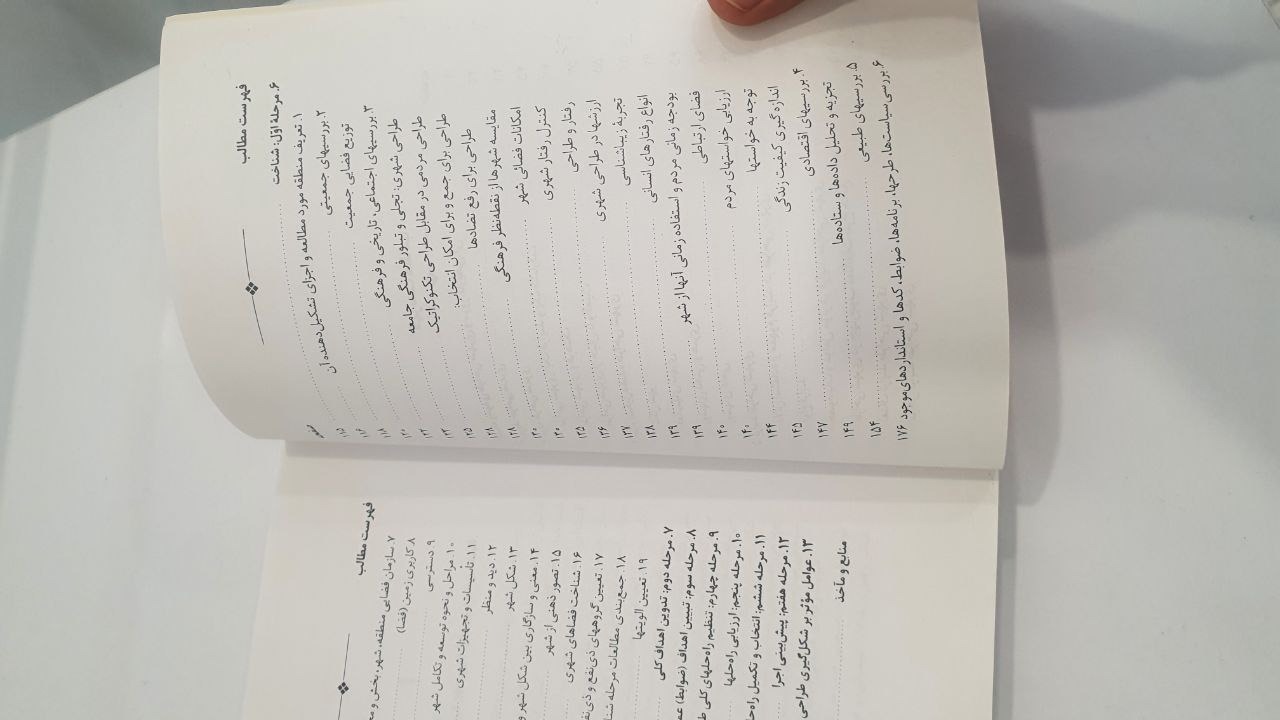 فهرست مطالب
صفحه
۶. مرحلهٔ اوّل: شناخت ... ۱۱۵
۱. تعریف منطقه مورد مطالعه و اجزای تشکیل‌دهنده آن ... ۱۱۶
۲. بررسیهای جمعیتی ... ۱۱۸
توزیع فضایی جمعیت ... ۱۲۰
۳. بررسیهای اجتماعی، تاریخی و فرهنگی ... ۱۲۲
طراحی شهری: تجلی و تبلور فرهنگی جامعه ... ۱۲۳
طراحی مردمی در مقابل طراحی تکنوکراتیک ... ۱۲۵
طراحی برای جمع و برای امکان انتخاب: ... ۱۲۸
طراحی برای رفع تضادها ... ۱۲۸
مقایسه شهرها از نقطه‌نظر فرهنگی ... ۱۳۰
امکانات فضائی شهر ... ۱۳۰
کنترل رفتار شهری ... ۱۳۵
رفتار و طراحی ... ۱۳۶
ارزشها در طراحی شهری ... ۱۳۷
تجربهٔ زیباشناسی ... ۱۳۸
انواع رفتارهای انسانی ... ۱۳۹
بودجه زمانی مردم و استفاده زمانی آنها از شهر ... ۱۳۹
فضای ارتباطی ... ۱۴۰
ارزیابی خواستهای مردم ... ۱۴۰
توجه به خواستها ... ۱۴۴
اندازه گیری کیفیت زندگی ... ۱۴۵
۴. بررسیهای اقتصادی ... ۱۴۷
تجزیه و تحلیل داده‌ها و ستاده‌ها ... ۱۴۹
۵. بررسیهای طبیعی ... ۱۵۴
۶. بررسی سیاست‌ها، طرحها، برنامه‌ها، ضوابط، کدها و استانداردهای موجود ۱۷۶
فهرست مطالب
۷. سازمان فضایی منطقه، شهر، بخش و
۸. کاربری زمین (فضا)
۹. دسترسی
۱۰. مراحل و نحوه توسعه و تکامل شهر
۱۱. تأسیسات و تجهیزات شهری
۱۲. دید و منظر
۱۳. شکل شهر
۱۴. معنی و سازگاری بین شکل شهر و
۱۵. تصور ذهنی از شهر
۱۶. شناخت فضاهای شهری
۱۷. تعیین گروههای ذی‌نفع و
۱۸. جمع‌بندی مطالعات مرحله
۱۹. تعیین الویتها
۷. مرحله دوم: تدوین اهداف کلی
۸. مرحله سوم: تبیین اهداف (ضوابط)
۹. مرحله چهارم: تنظیم راه‌حلهای کلی
۱۰. مرحله پنجم: ارزیابی راه‌حلها
۱۱. مرحله ششم: انتخاب و تکمیل
۱۲. مرحله هفتم: پیش‌بینی اجرا
۱۳. عوامل مؤثر بر شکل‌گیری طراحی
منابع و مآخذ